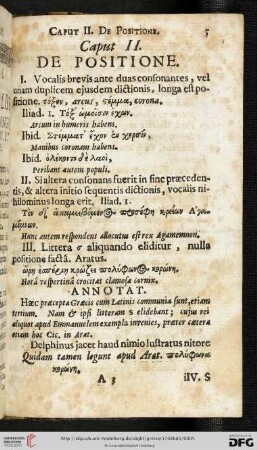 CAPUT II. DE POSITIONE. 5
Caput II.
DE POSITIONE.
I. Vocalis brevis ante duas consonantes, vel
unam duplicem ejusdem dictionis, longa est po-
sitione. τόξον, arcus, στέμμα, corona.
Iliad. 1. Τόξ' ὤμοισιν ἔχων.
Arcum in humeris habens.
Ibid. Στέμματ' ἔχων ἐν χερσὶν,
Manibus coronam habens.
Ibid. ὀλέκοντο δὲ λαοὶ,
Peribant autem populi.
II. Si altera consonans fuerit in fine præceden-
tis, & altera initio sequentis dictionis, vocalis ni-
hilominus longa erit, Iliad. 1.
Τὸν δ' ἀπαμειβόμενος προσέφη κρείων Ἀγα-
μέμνων.
Hunc autem respondens allocutus est rex Agamemnon.
III. Littera σ aliquando eliditur, nulla
positione factâ. Aratus.
ὥρη ἑσπερίη κρώζει πολύφωνος κορώνη.
Horâ vespertinâ crocitat clamosa cornix.
ANNOTAT.
Hæc præcepta Græcis cum Latinis communia sunt, etiam
tertium. Nam & ipsi litteram S elidebant; cujus rei
aliquot apud Emmanuelem exempla invenies, præter cætera
etiam hoc Cic. in Arat.
Delphinus jacet haud nimio lustratus nitore
Quidam tamen legunt apud Arat. πολύφωνα
κορώνη.
A 3 IV. S
http://digi.ub.uni-heidelberg.de/diglit/
© Universitätsbibliothek Heidelberg
gefördert durch die
DFG